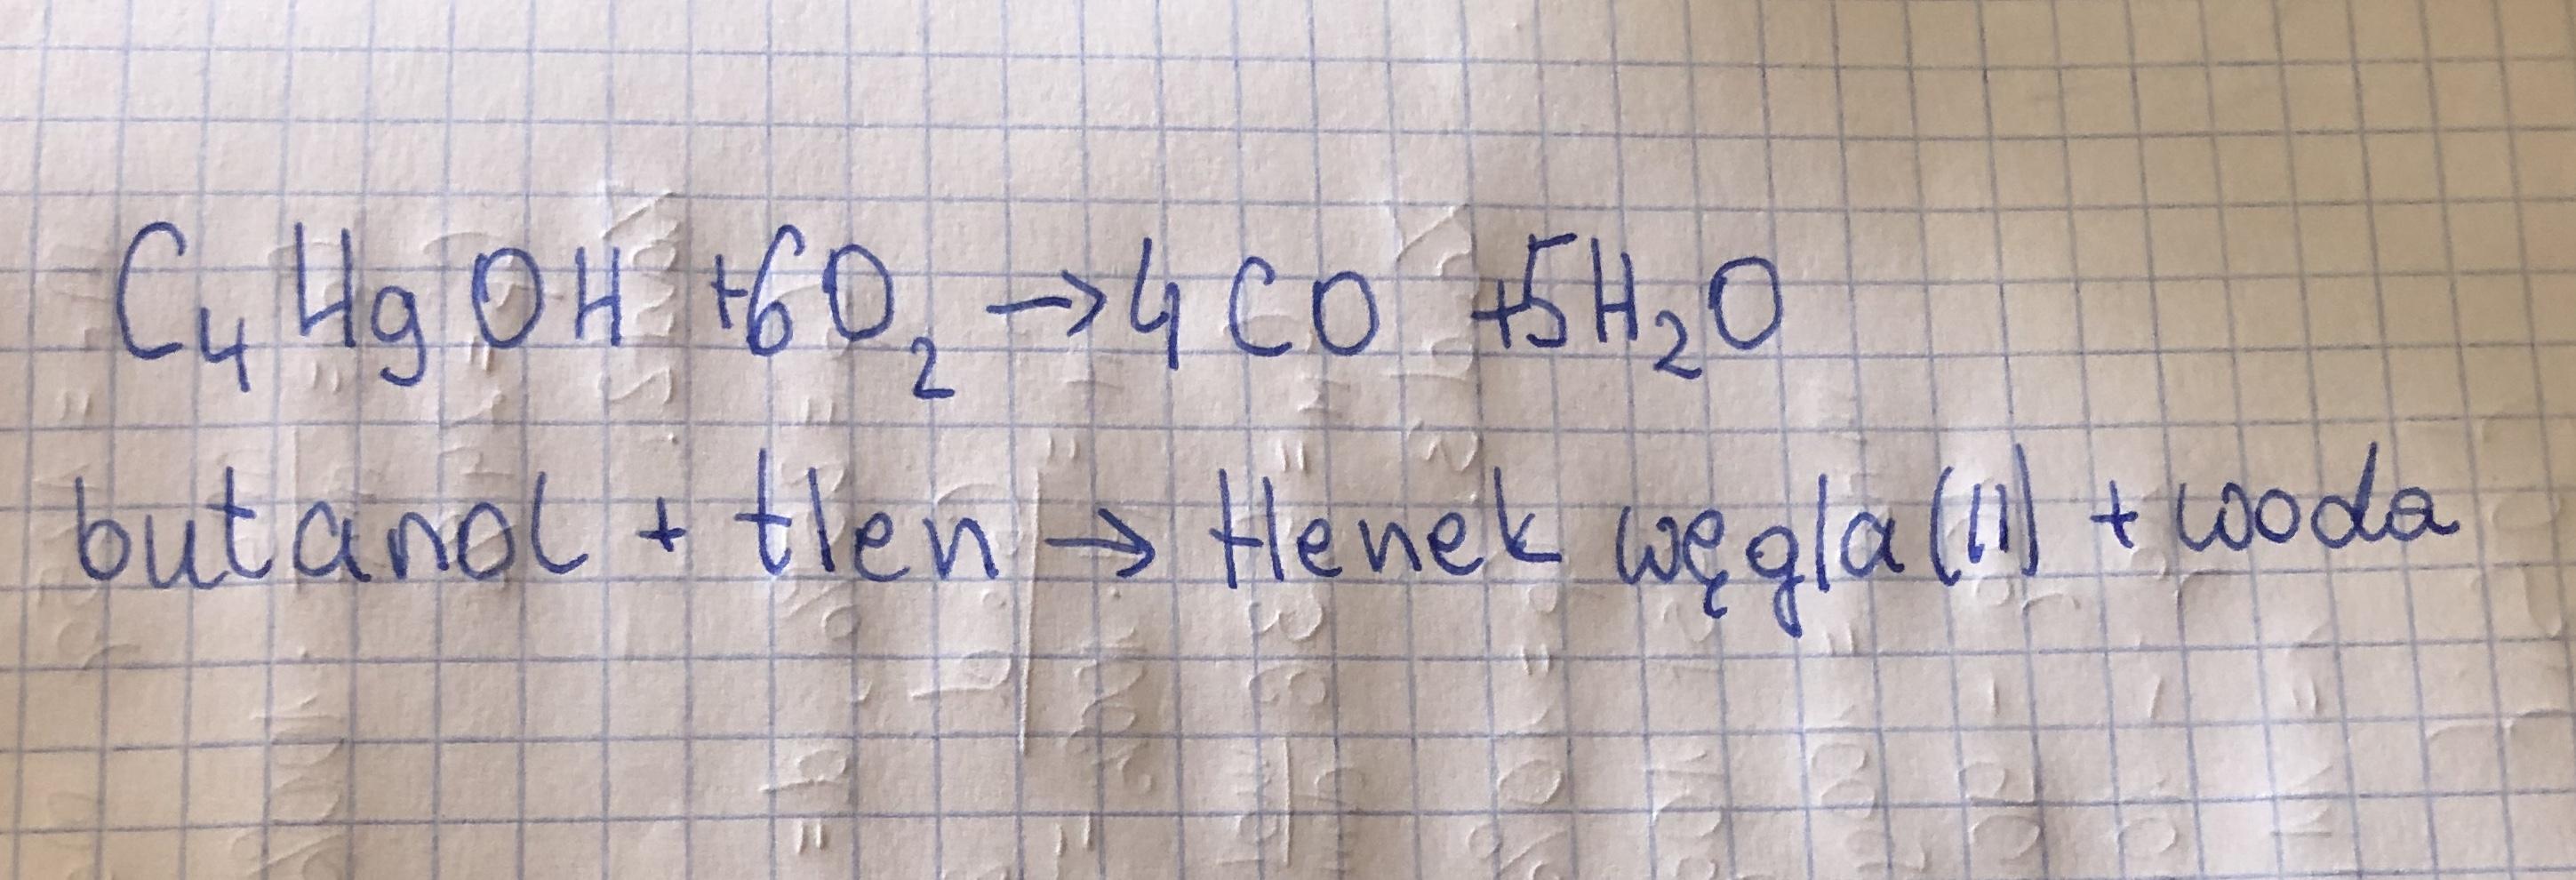 C₄H₉OH +6O₂ → 4CO +5H₂O
butanol + tlen → tlenek węgla (II) + woda